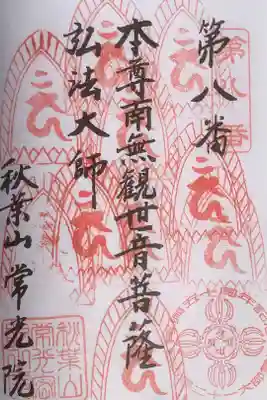 第八番
本尊南無觀世音菩薩
弘法大師
秋葉山常光院
第八番
秋葉山
常光院